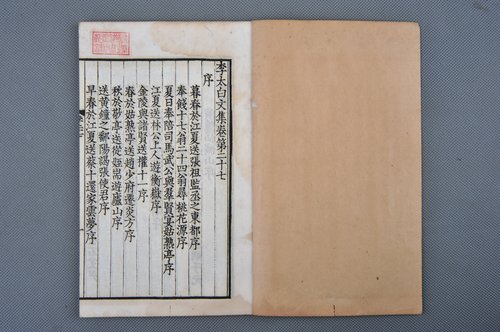 李太白文集卷第二十七
序
暮春於江夏送張祖監丞之東都序
奉餞十七翁二十四翁尋桃花源序
夏日奉陪司馬武公與羣賢宴姑熟亭序
江夏送林公上人遊衡嶽序
金陵與諸賢送權十一序
春於姑熟送趙少府遷炎方序
秋於敬亭送從姪耑遊廬山序
送黃鐘之鄱陽謁張使君序
早春於江夏送蔡十還家雲夢序